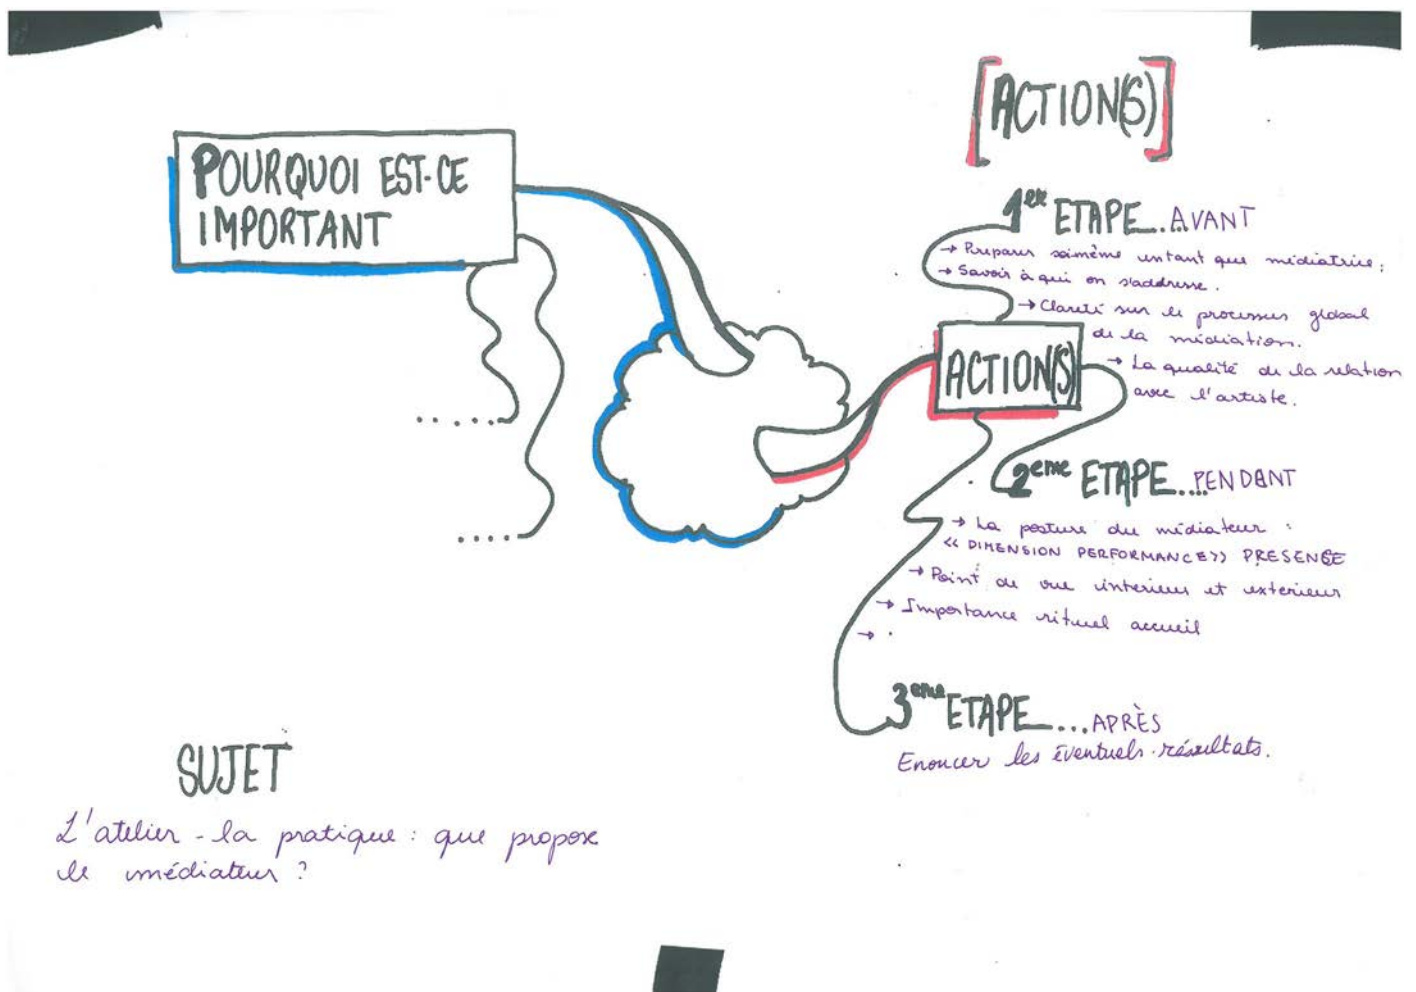 POURQUOI EST-CE
IMPORTANT
[ACTION(S)]
1ere ETAPE...AVANT
→ Preparer soimême entant que médiatrice;
→ Savoir à qui on s'addresse.
→ Clareté sur le processus global
de la médiation.
→ La qualité de la relation
avec l'artiste.
ACTION(S)
2eme ETAPE...PENDANT
→ La posture du médiateur :
<< DIMENSION PERFORMANCE>> PRESENCE
→ Point de vue interieur et exterieur
→ Importance rituel accueil
→ .
3eme ETAPE...APRÈS
Enoncer les éventuels résultats.
SUJET
L'atelier - la pratique : que propose
le médiateur ?